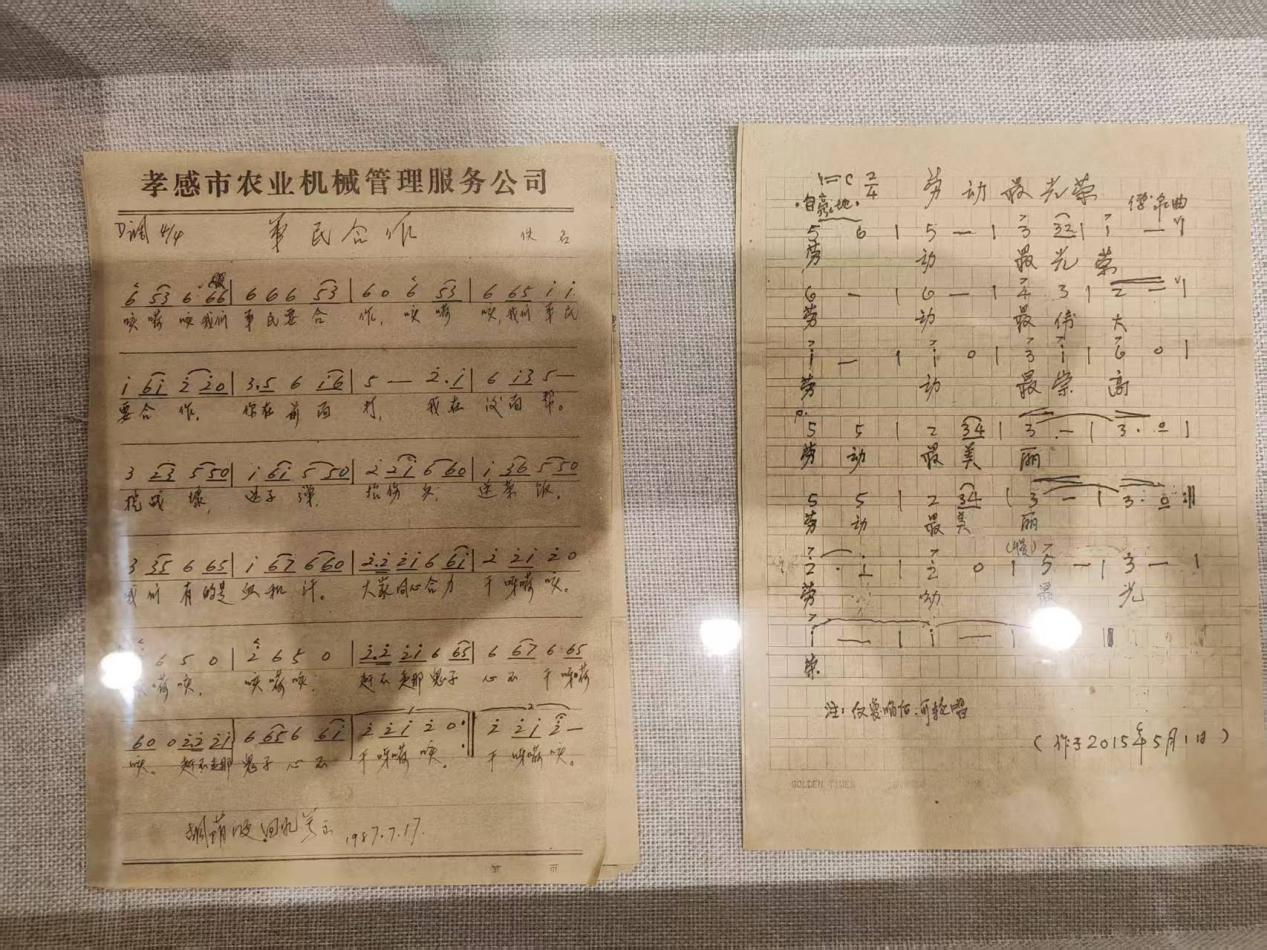 孝感市农业机械管理服务公司
D调 4/4 军民合作 佚名
6 53 6 66 | 6 6 6 53 | 6 0 6 53 | 6 65 i i
咳嗬咳我们军民要合作,咳嗬咳,我们军民
i 6i 2 20 | 3.5 6 i6 | 5 — 2.i | 6 i3 5 —
要合作,你在前面打,我在后面帮。
3 23 5 50 | i 6i 5 50 | 2 2i 6 60 | i 36 5 50
挖战壕,送子弹,抬伤员,送茶饭,
3 35 6 65 | i 67 6 60 | 2.2 2i 6 6i | 2 2i 2 0
我们有的是血和汗。大家同心合力干呀嗬咳。
6 5 0 | 2 6 5 0 | 2.2 2i 6 65 | 6 67 6 65
嗬咳,咳嗬咳,赶不走那鬼子心不干呀嗬
60 0 2.2 2i | 6 65 6 6i | 2 2i 2 0 :‖ 2 2i 2 —
咳。赶不走那鬼子心不干呀嗬咳。干呀嗬咳。
1987.7.17.
1=C 2/4 劳动最光荣
·自豪地·
5 6 | 5 — | 3 32 | i — |
劳动最光荣
6 — | 6 — | 4 3 | 2 — |
劳动最伟大
i — | i 0 | 3 i | 6 0 |
劳动最崇高
5 5 | 2 34 | 3 — | 3. 0 |
劳动最美丽
5 5 | 2 34 | 3 — | 3. 0 :‖
劳动最美丽
(慢)
2. i | 2 0 | 5 — | 3 — |
劳动最光
i — | i — |
荣
注:
(作于2015年5月1日)
GOLDEN TIMES